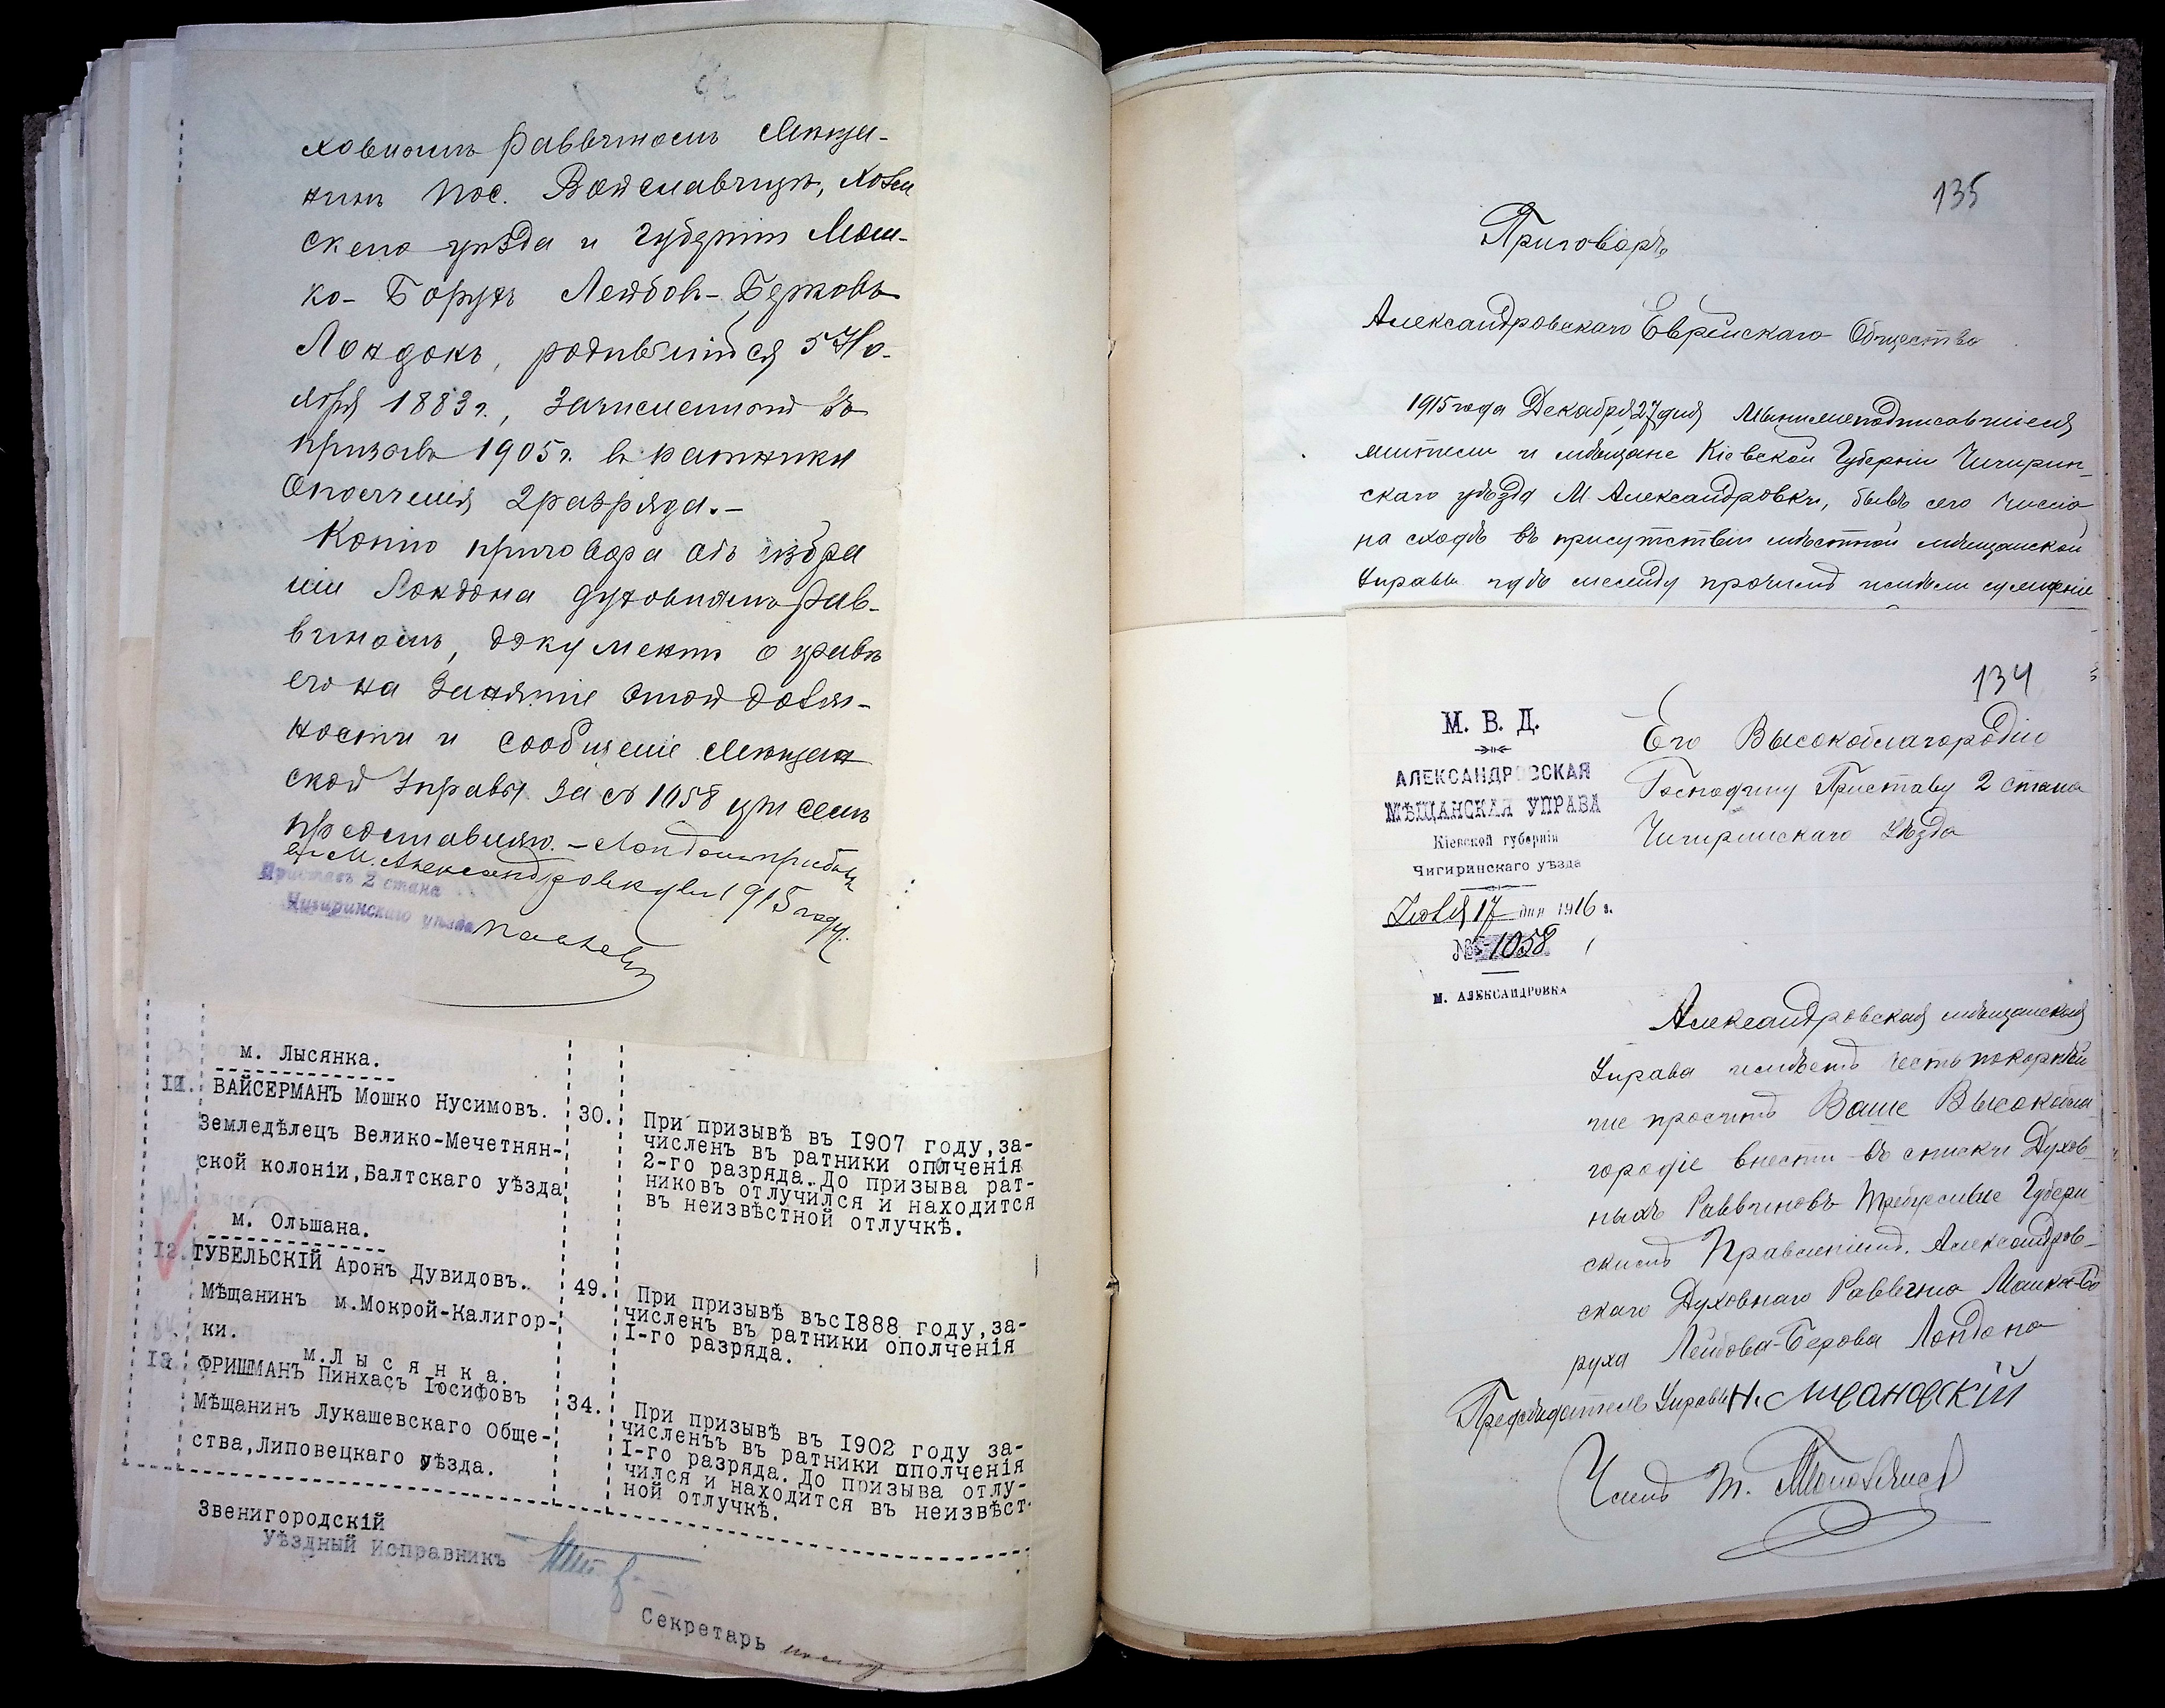 ховнымъ раввиномъ мѣща-
нинъ пос. Войславицъ, Холм
скаго уѣзда и губерніи Мош-
ко-Борухъ Лейбовъ-Берковъ
Лондонъ, родившійся 5 Но-
ября 1883 г., зачисленный въ
призывъ 1905 г. въ ратники
ополченія 2 разряда.-
Копію приговора объ избра
ніи Лондона духовнымъ рав-
виномъ, документъ о правѣ
его на занятіе этой долж-
ности и сообщеніе мѣщан
ской Управы за № 1058 при семъ
представляю. - Лондонъ прибылъ
въ м. Александровку въ 1915 году.
Приставъ 2 стана
Чигиринскаго уѣзда
м. Лысянка.
11. ВАЙСЕРМАНЪ Мошко Нусимовъ.
Земледѣлецъ Велико-Мечетнян-
ской колоніи,Балтскаго уѣзда
30. При призывѣ въ 1907 году,за-
численъ въ ратники ополченія
2-го разряда. До призыва рат-
никовъ отлучился и находится
въ неизвѣстной отлучкѣ.
м. Ольшана.
12. ТУБЕЛЬСКІЙ Аронъ Дувидовъ.
Мѣщанинъ м.Мокрой-Калигор-
ки.
49. При призывѣ въс1888 году,за-
численъ въ ратники ополченія
I-го разряда.
м.Лысянка.
13 ФРИШМАНЪ Пинхасъ Іосифовъ
Мѣщанинъ Лукашевскаго Обще-
ства,Липовецкаго уѣзда.
34. При призывѣ въ 1902 году за-
численъъ въ ратники ополченія
I-го разряда. До призыва отлу-
чился и находится въ неизвѣст-
ной отлучкѣ.
Звенигородскій
Уѣздный Исправникъ
Секретарь
135
Приговоръ
Александровскаго Еврейскаго Общества
1915 года Декабря 27 дня Мы нижеподписавшіеся
жители и мѣщане Кіевской Губерніи Чигирин-
скаго уѣзда М. Александровки, бывъ сего числа
на сходѣ въ присутствіи мѣстной мѣщанской
Управы гдѣ между прочимъ имѣли сужденіе
134
М. В. Д.
АЛЕКСАНДРОВСКАЯ
МѢЩАНСКАЯ УПРАВА
Кіевской губерніи
Чигиринскаго уѣзда
Іюля 17 дня 1916 г.
№ 1058
М. АЛЕКСАНДРОВКА
Его Высокоблагородію
Господину Приставу 2 стана
Чигиринскаго Уѣзда
Александровская мѣщанская
Управа имѣетъ честь покорнѣй
ше просить Ваше Высокобла
городіе внести въ списки Духов
ныхъ Раввиновъ Губерн
скимъ Правленіемъ. Александров-
скаго Духовнаго Раввина Мошка-Бо
руха Лейбова-Берова Лондона
Предсѣдатель Управы
Членъ Т.